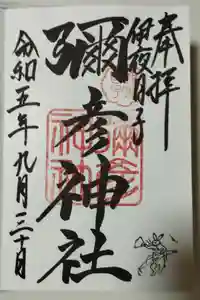 奉拝
伊夜日子
彌彦神社
令和五年九月三十日